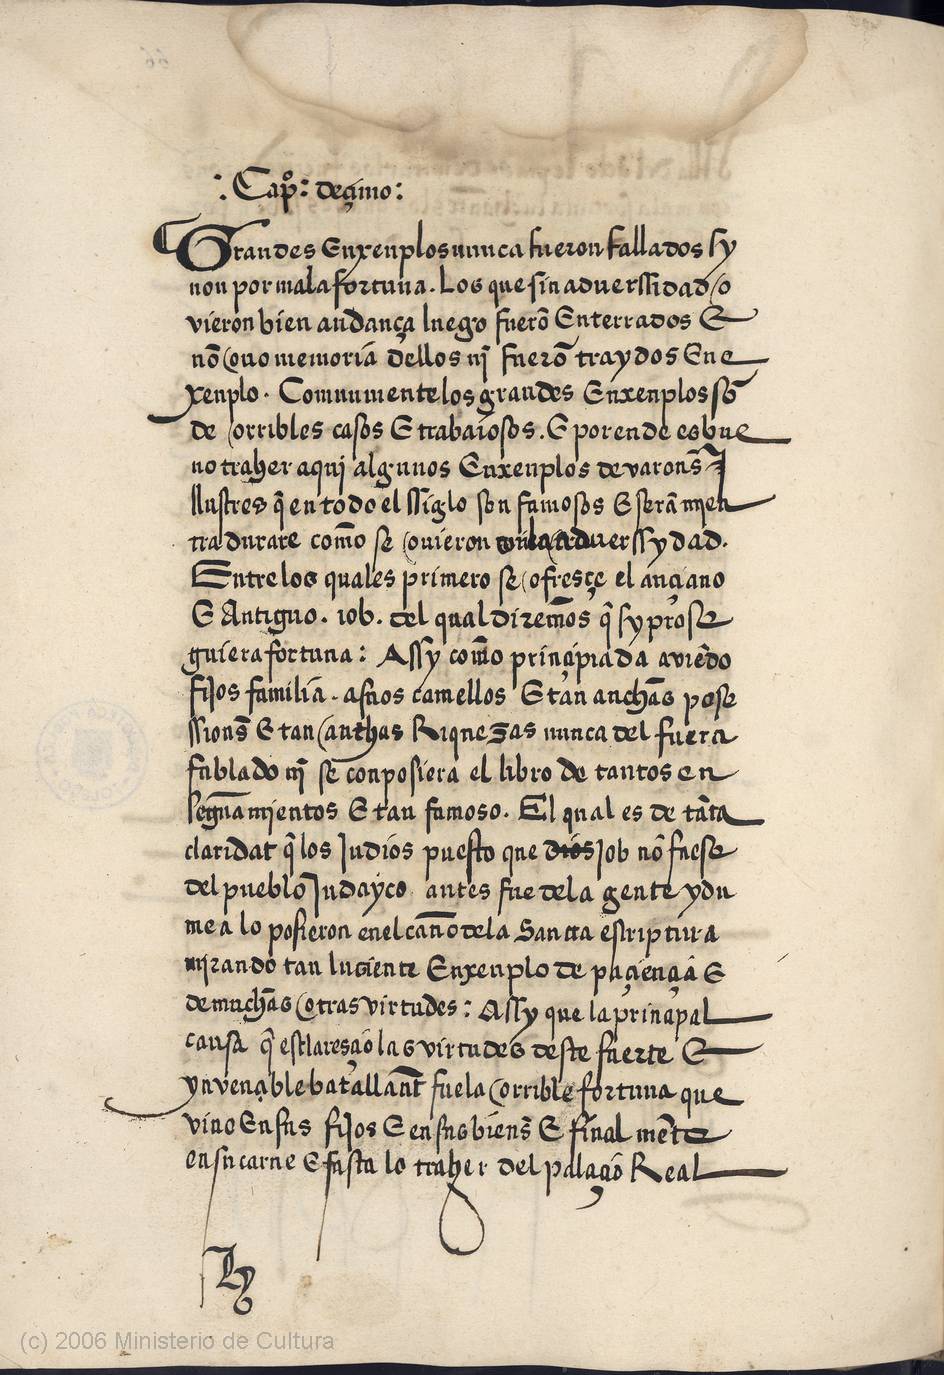 :Capº: deçimo:
Grandes Enxenplos nunca fueron fallados sy
non por mala fortuna. Los que sin aduerssidad o
vieron bien andança luego fuerō Enterrados E
nō ouo memoriā dellos nī fuerō traydos En e
xenplo. Comunmente los grandes Enxenplos sō
de orribles casos E trabaiosos. E por ende es bue
no traher aqui algunos Enxenplos de varons̄ I
llustres q̄ en todo el ssiglo son famosos E serā mien
tra durare com̄o se ouieron con la aduerssydad.
Entre los quales primero se ofresçe el ançiano
E Antiguo. iob. del qual direm̄os q̄ sy prose
guiera fortuna: Assy com̄o prinçipiada aviēdo
fijos familiā. asnos camellos E tan anchās pose
ssions̄ E tan anthas Riquezas nunca del fuera
fablado nī se conposiera el libro de tantos en
segn̄amientos E tan famoso. El qual es de tāta
claridat q̄ los Judios puesto que dios Job nō fuese
del pueblo Judayco antes fue de la gente ydu
mea lo posieron en el can̄o de la Sancta escriptura
mirando tan luciente Enxenplo de paçiençiā E
de muchās otras virtudes: Assy que la prinçipal
causa q̄ esclaresçio las virtudes deste fuerte E
ynvençible batallant̄ fue la orrible fortuna que
vino En sus fijos E en sus biens̄ E final ment̄e
en su carne E fasta lo traher del palaçiō Real
(c) 2006 Ministerio de Cultura